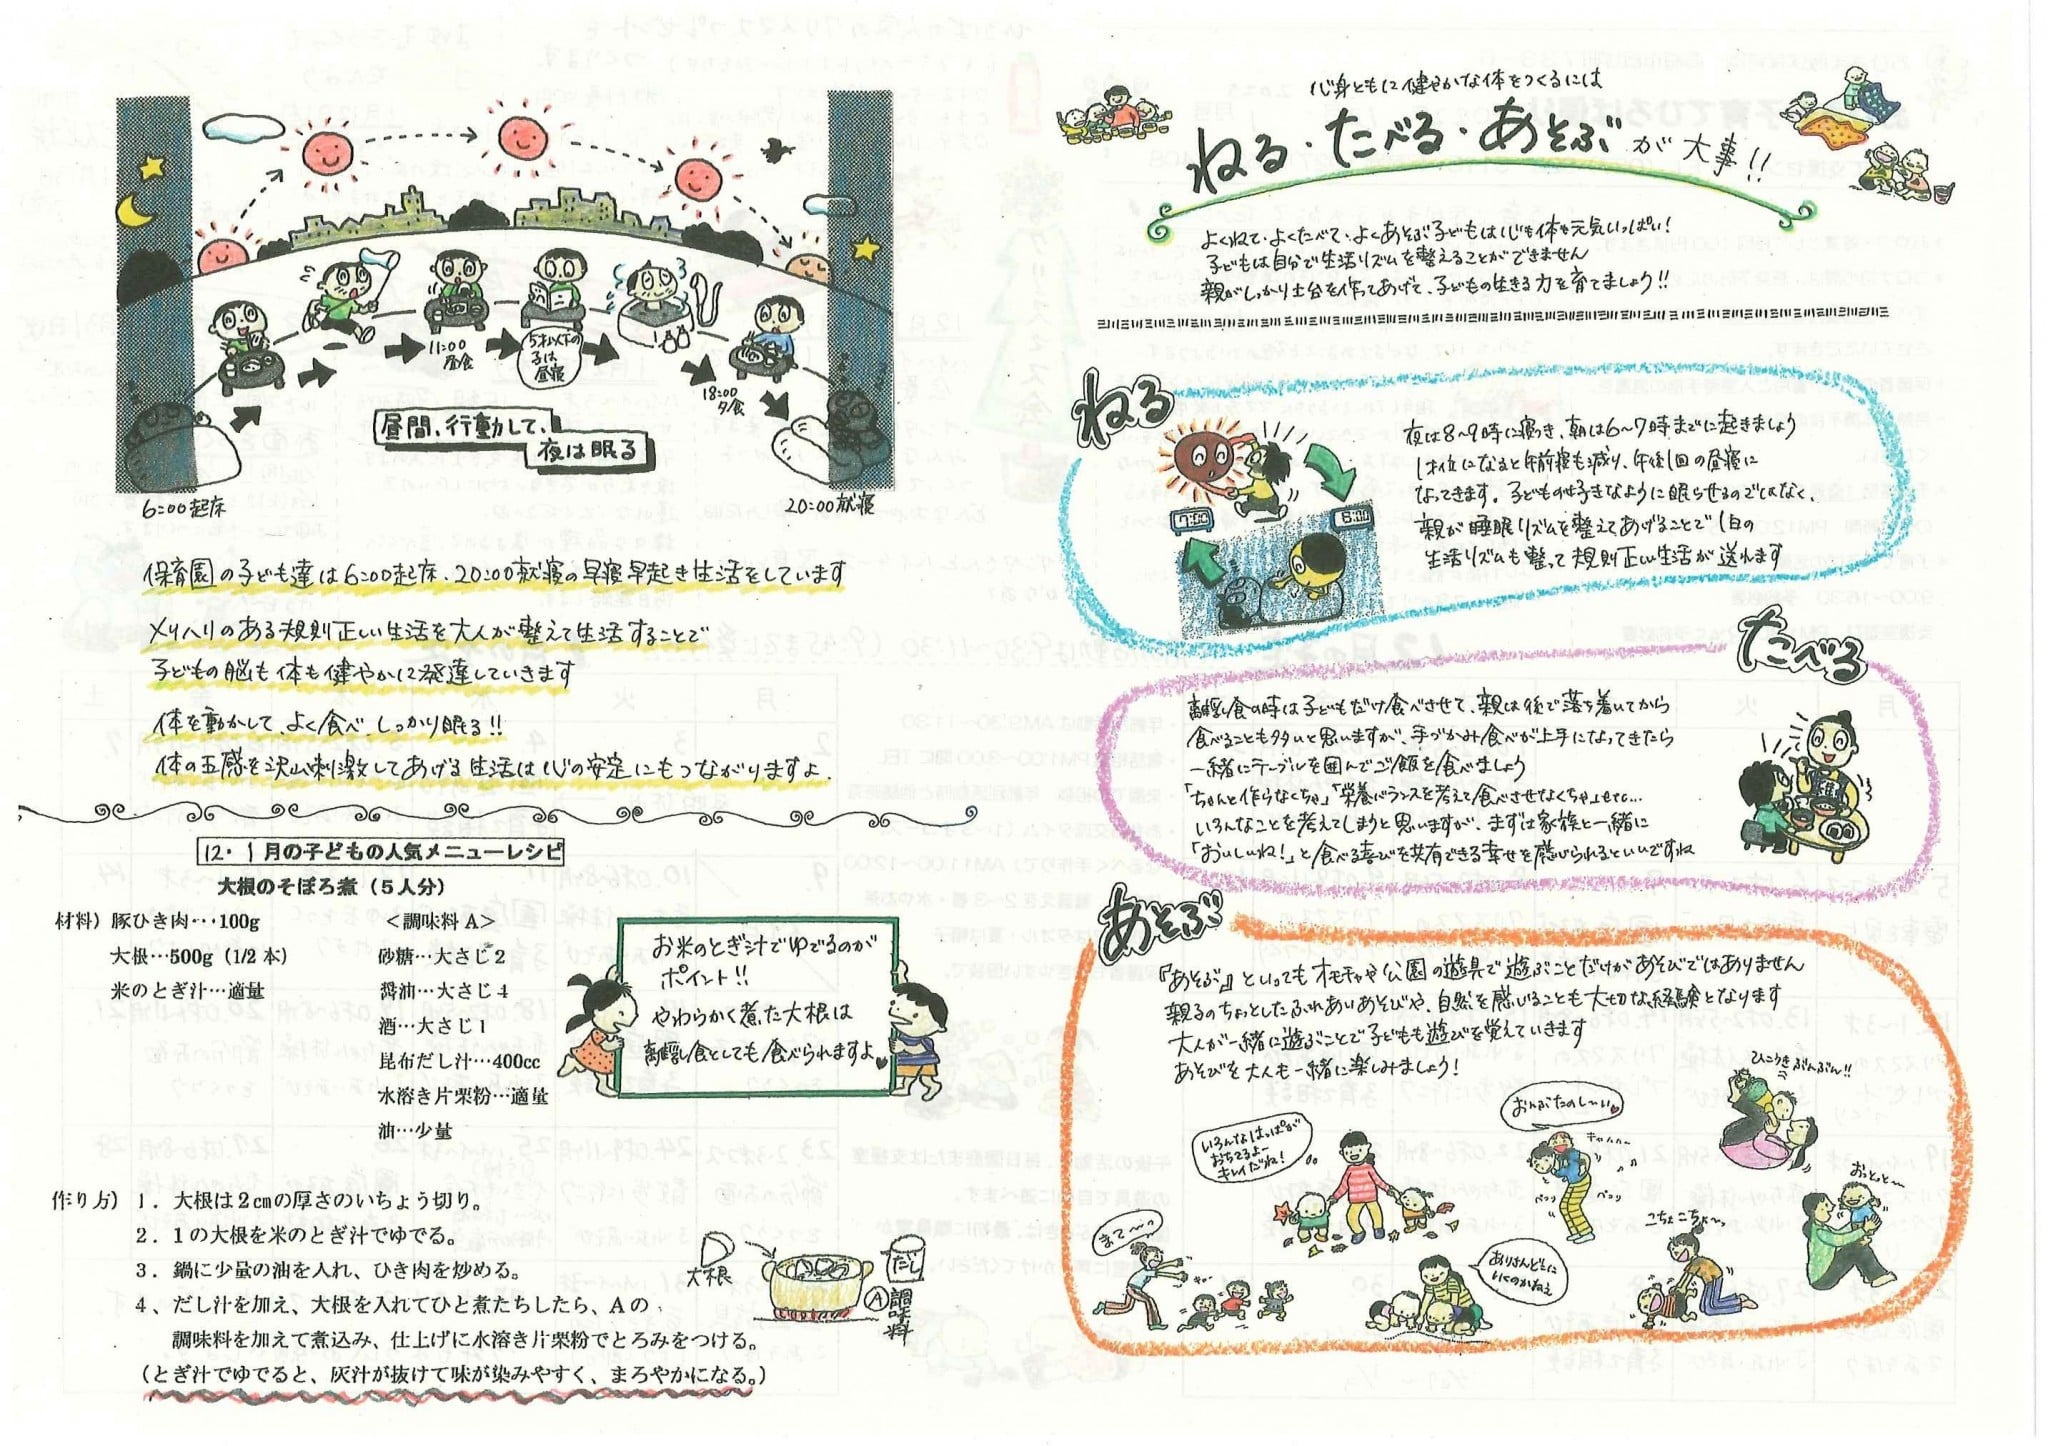 11:00
昼食
5才以下の
子は
昼寝
18:00
夕食
昼間、行動して、
夜は眠る
6:00起床
20:00就寝
保育園の子ども達は6:00起床、20:00就寝の早寝早起き生活をしています
メリハリのある規則正しい生活を大人が整えて生活することで
子どもの脳も体も健やかに発達していきます
体を動かして、よく食べ、しっかり眠る!!
体の五感を沢山刺激してあげる生活は心の安定にもつながりますよ。
12・1月の子どもの人気メニューレシピ
大根のそぼろ煮(5人分)
材料)豚ひき肉・・・100g
大根…500g(1/2本)
米のとぎ汁…適量
<調味料A>
砂糖…大さじ2
醤油…大さじ4
酒…大さじ1
昆布だし汁…400cc
水溶き片栗粉…適量
油…少量
お米のとぎ汁でゆでるのが
ポイント!!
やわらかく煮た大根は
離乳食としても食べられますよ♥
作り方)1.大根は2㎝の厚さのいちょう切り。
2.1の大根を米のとぎ汁でゆでる。
3.鍋に少量の油を入れ、ひき肉を炒める。
4、だし汁を加え、大根を入れてひと煮たちしたら、Aの
調味料を加えて煮込み、仕上げに水溶き片栗粉でとろみをつける。
(とぎ汁でゆでると、灰汁が抜けて味が染みやすく、まろやかになる。)
大根
だし
Ⓐ調味料
心身ともに健やかな体をつくるには
ねる・たべる・あそぶが大事!!
よくねて・よくたべて・よくあそぶ子どもは心も体も元気いっぱい!
子どもは自分で生活リズムを整えることができません
親がしっかり土台を作ってあげて、子どもの生きる力を育てましょう!!
ねる
夜は8~9時に寝つき、朝は6~7時までに起きましょう
1才位になると午前寝も減り、午後1回の昼寝に
なってきます。子どもの好きなように眠らせるのではなく、
親が睡眠リズムを整えてあげることで1日の
生活リズムも整って規則正しい生活が送れます
7:00
8:00
たべる
離乳食の時は子どもだけ食べさせて、親は後で落ち着いてから
食べることも多いと思いますが、手づかみ食べが上手になってきたら
一緒にテーブルを囲んでご飯を食べましょう
「ちゃんと作らなくちゃ」「栄養バランスを考えて食べさせなくちゃ」etc…
いろんなことを考えてしまうと思いますが、まずは家族と一緒に
「おいしいね!」と食べる喜びを共有できる幸せを感じられるといいですね
あそぶ
『あそぶ』といってもオモチャや公園の遊具で遊ぶことだけがあそびではありません
親子のちょっとしたふれあいあそびや、自然を感じることも大切な経験となります
大人が一緒に遊ぶことで子どもも遊びを覚えていきます
あそびを大人も一緒に楽しみましょう!
ひこうきぶんぶん!!
おんぶたのしーい♥
いろんなはっぱが
おちてるよー
キレイだね!
ペコッ
ペコッ
おっとっと~
まて~
こちょこちょ~
ありさんどこに
いくのかねぇ